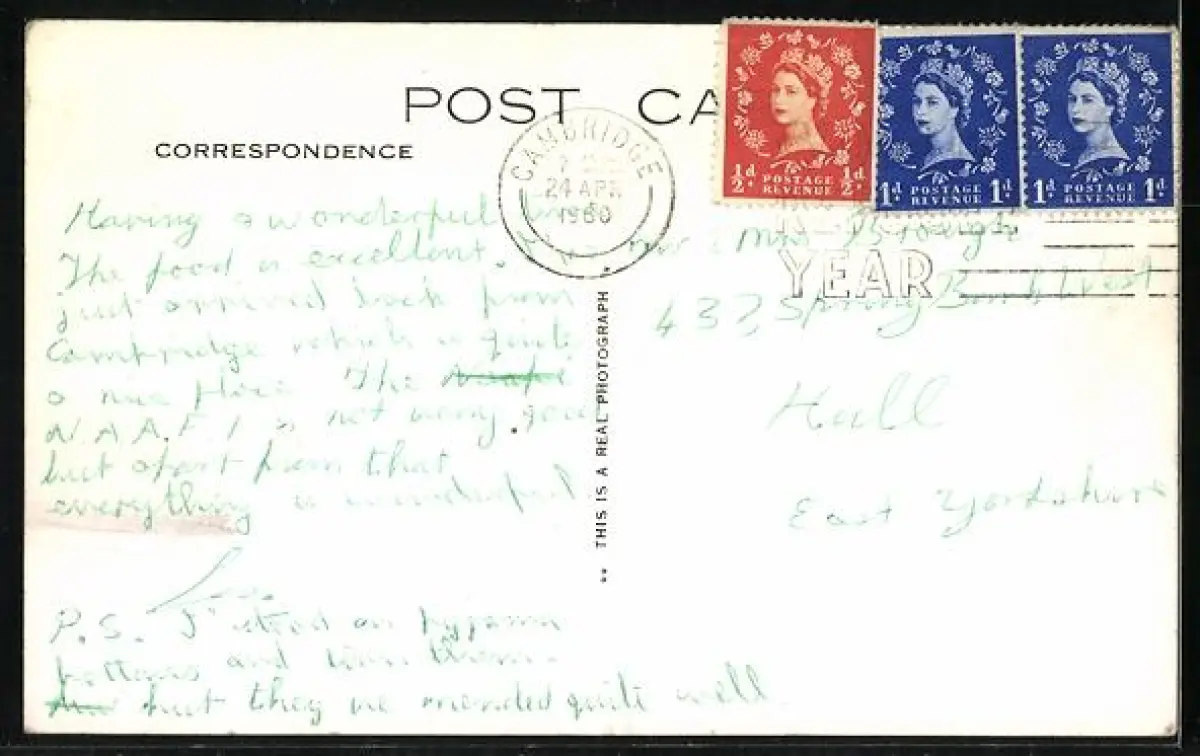 POST CA
CORRESPONDENCE
CAMBRIDGE
24 APR
1960
½d POSTAGE REVENUE ½d
1d POSTAGE REVENUE 1d
1d POSTAGE REVENUE 1d
YEAR
Having a wonderful
The food is excellent.
just arrived back from
Cambridge which is quite
a nice place. The
N.A.A.F.I is not very good
but apart from that
everything is wonderful
P.S. I stood on pyjama
bottoms and torn them.
but they're mended quite well.
THIS IS A REAL PHOTOGRAPH
Mrs
437, Spring Bank West
Hull
East Yorkshire